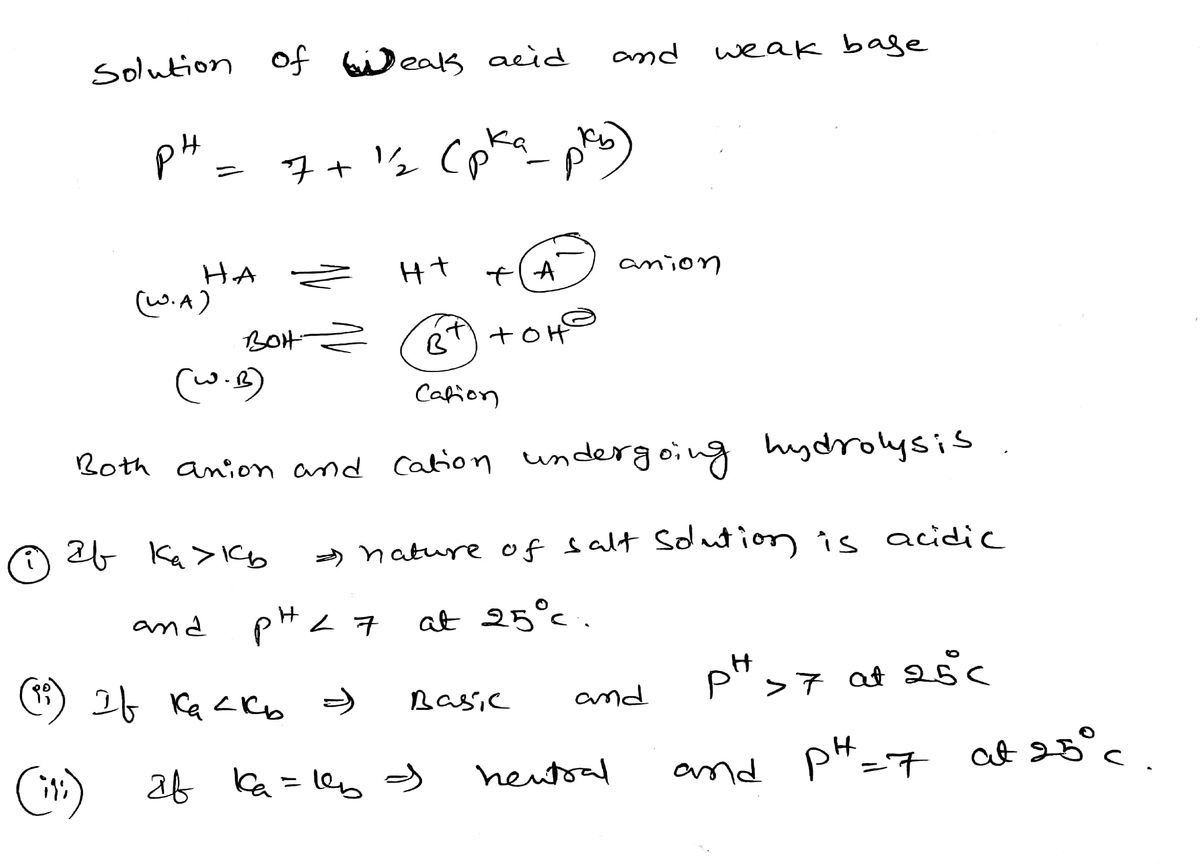 Solution of Weak acid and weak base
pH = 7 + 1/2 (pKa - pKb)
HA ⇌ H+ + A- anion
(W.A)
BOH ⇌ B+ + OH⊖
(W.B) Cation
Both anion and cation undergoing hydrolysis.
(i) If Ka > Kb ⇒ nature of salt solution is acidic
and pH < 7 at 25°c.
(ii) If Ka < Kb ⇒ Basic and pH > 7 at 25°C
(iii) If Ka = Kb ⇒ neutral and pH = 7 at 25°c.